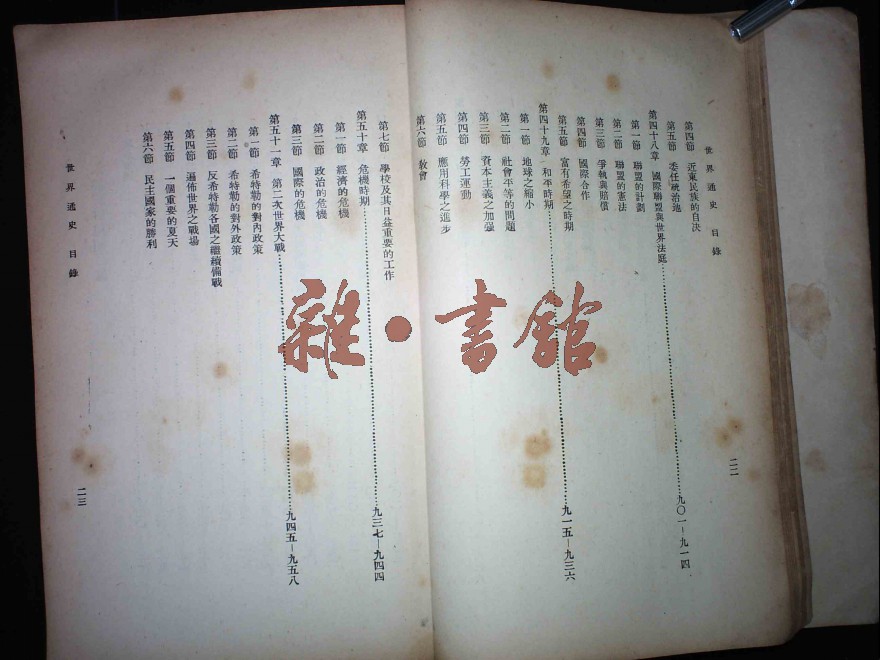 世界通史 目錄
二二
第四節 近東民族的自決
第五節 委任統治地
第四十八章 國際聯盟與世界法庭……九〇一—九一四
第一節 聯盟的計劃
第二節 聯盟的憲法
第三節 爭執與賠償
第四節 國際合作
第五節 富有希望之時期
第四十九章 和平時期……九一五—九三六
第一節 地球之縮小
第二節 社會平等的問題
第三節 資本主義之加強
第四節 勞工運動
第五節 應用科學之進步
第六節 教會
第七節 學校及其日益重要的工作
第五十章 危機時期……九三七—九四四
第一節 經濟的危機
第二節 政治的危機
第三節 國際的危機
第五十一章 第二次世界大戰……九四五—九五八
第一節 希特勒的對內政策
第二節 希特勒的對外政策
第三節 反希特勒各國之繼續備戰
第四節 遍佈世界之戰場
第五節 一個重要的夏天
第六節 民主國家的勝利
世界通史 目錄
二三
雜·書館